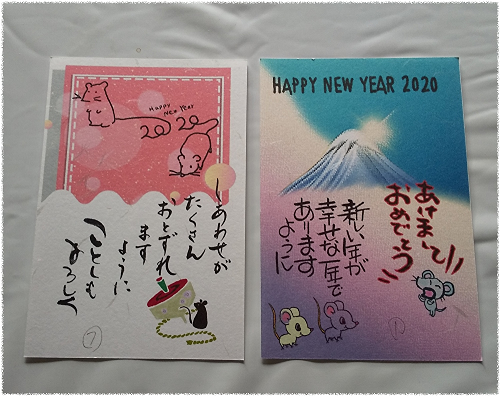 Happy
New Year
2020
しあわせが
たくさん
おとずれ
ます
ように
ことしも
よろしく
7
HAPPY NEW YEAR 2020
あけまして
おめでとう
新しい年が
幸せな一年で
あります
ように